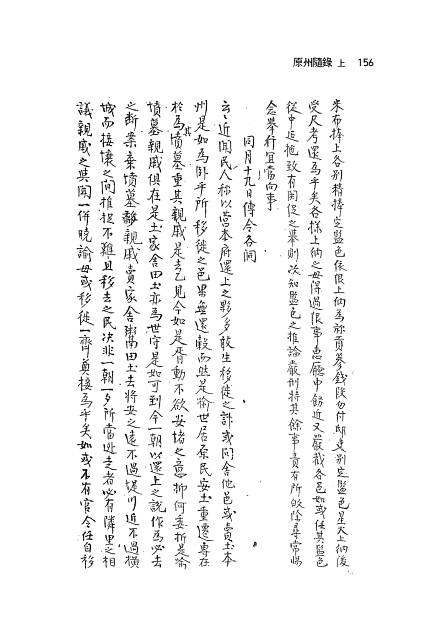 原州隨錄 上 156
來布捧上各別精捧定監色依限上納爲㫆貢蔘錢段勿付邸吏別定監色星火上納後
受尺考還爲乎矣各樣上納之毋得過限事惠廳申飭近又嚴截各邑如或任其監色
從中迤拖致有関促之擧則次知監色之推論嚴刑特其餘事責有所收除尋常惕
念擧行宜當向事
同月十九日傳令各面
云云近聞民人称以當本府還上之夥多敢生移徙之計或問舍他邑或賣土本
州是如爲卧乎所移徙之邑果無還穀而然是喩世居原民安土重遷專在
於爲墳墓重其親戚是去乙見今如是胥動不欲安堵之意抑何委折是喩
墳墓親戚俱在是土家舍田土亦爲世守是如可到今一朝以還上之說作爲必去
之断案棄墳墓離親戚賣家舍斥田土去將安之遠不過堤川近不過橫
城而接壤之間推捉不難且移去之民决非一朝一夕所當逃走者必有隣里之相
議親戚之與聞一倂曉諭毋或移徙一齊奠接爲乎矣如或不有官令任自移